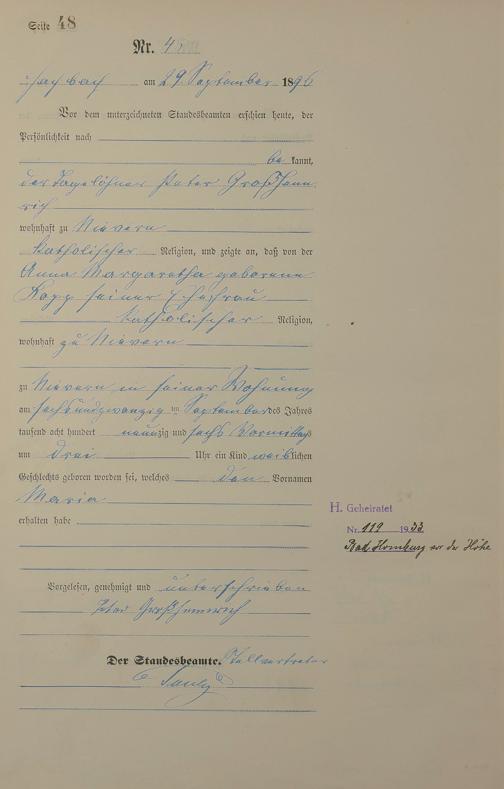 Seite 48
Nr. 4
Fachbach am 29 September 1896
Vor dem unterzeichneten Standesbeamten erschien heute, der
Persönlichkeit nach
be kannt,
der Tagelöhner Peter Großhenn
rich
wohnhaft zu Nievern
katholischer Religion, und zeigte an, daß von der
Anna Margaretha geborene
Kopp seiner Ehefrau
katholischer Religion,
wohnhaft zu Nievern
zu Nievern in seiner Wohnung
am sechsundzwanzig ten September des Jahres
tausend acht hundert neunzig und sechs Vormittags
um drei Uhr ein Kind weiblichen
Geschlechts geboren worden sei, welches den Vornamen
Maria
erhalten habe
H. Geheiratet
Nr. 119 1933
Bad Homburg vor der Höhe
Vorgelesen, genehmigt und unterschrieben
Peter Großhennrich
Der Standesbeamte. Stellvertreter